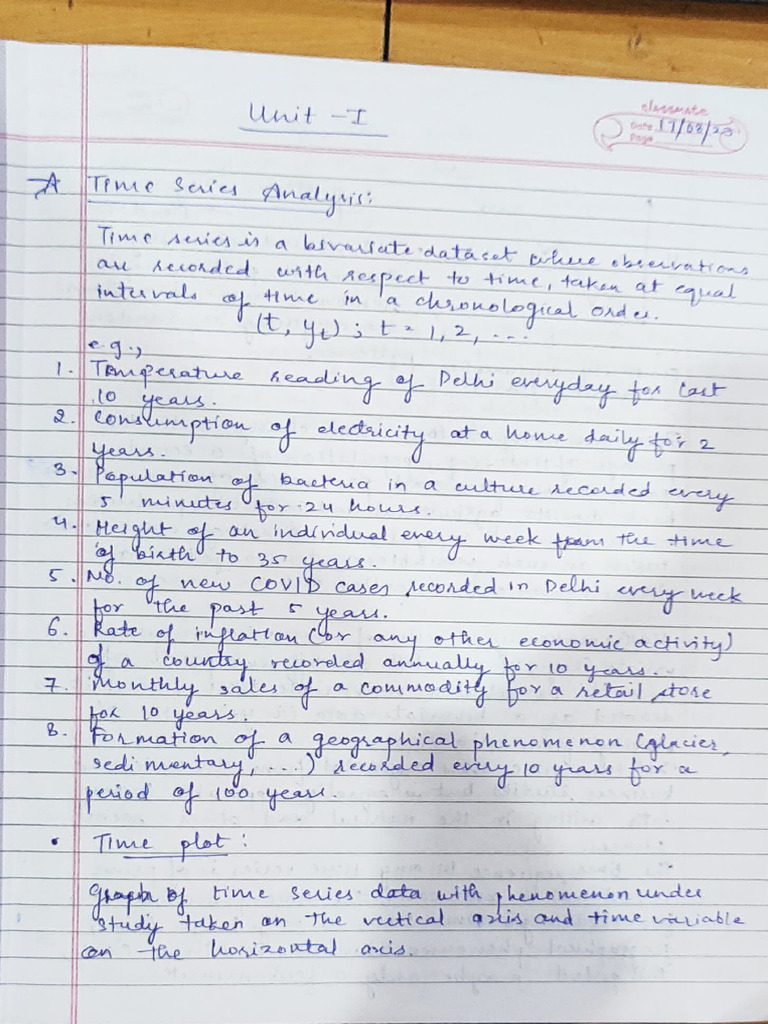 Unit - I
classmate
Date 17/08/23
Page
A Time Series Analysis:
Time series is a bivariate dataset where observations
are recorded with respect to time, taken at equal
intervals of time in a chronological order.
(t, yt) ; t = 1, 2, ...
e.g.,
1. Temperature reading of Delhi everyday for last
10 years.
2. Consumption of electricity at a home daily for 2
years.
3. Population of bacteria in a culture recorded every
5 minutes for 24 hours.
4. Height of an individual every week from the time
of birth to 35 years.
5. No. of new COVID cases recorded in Delhi every week
for the past 5 years.
6. Rate of inflation (or any other economic activity)
of a country recorded annually for 10 years.
7. Monthly sales of a commodity for a retail store
for 10 years.
8. Formation of a geographical phenomenon (glacier,
sedimentary, ...) recorded every 10 years for a
period of 100 years.
• Time plot:
Graph of time series data with phenomenon under
study taken on the vertical axis and time variable
on the horizontal axis.